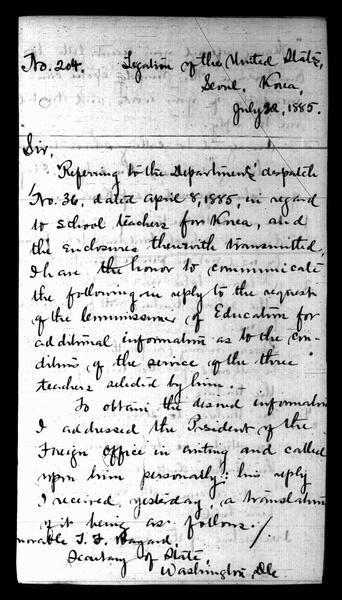 No. 204.
Legation of the United States,
Seoul, Korea,
July 22, 1885.
Sir,
Referring to the Department's despatch
No. 36, dated April 8, 1885, in regard
to school teachers for Korea, and
the enclosures therewith transmitted,
I have the honor to communicate
the following in reply to the request
of the Commissioner of Education for
additional information as to the con-
ditions of the service of the three
teachers selected by him.
To obtain the desired information
I addressed the President of the
Foreign Office in writing and called
upon him personally: his reply
I received yesterday, a translation
of it being as follows:/
norable T. F. Bayard,
Secretary of State,
Washington, D.C.